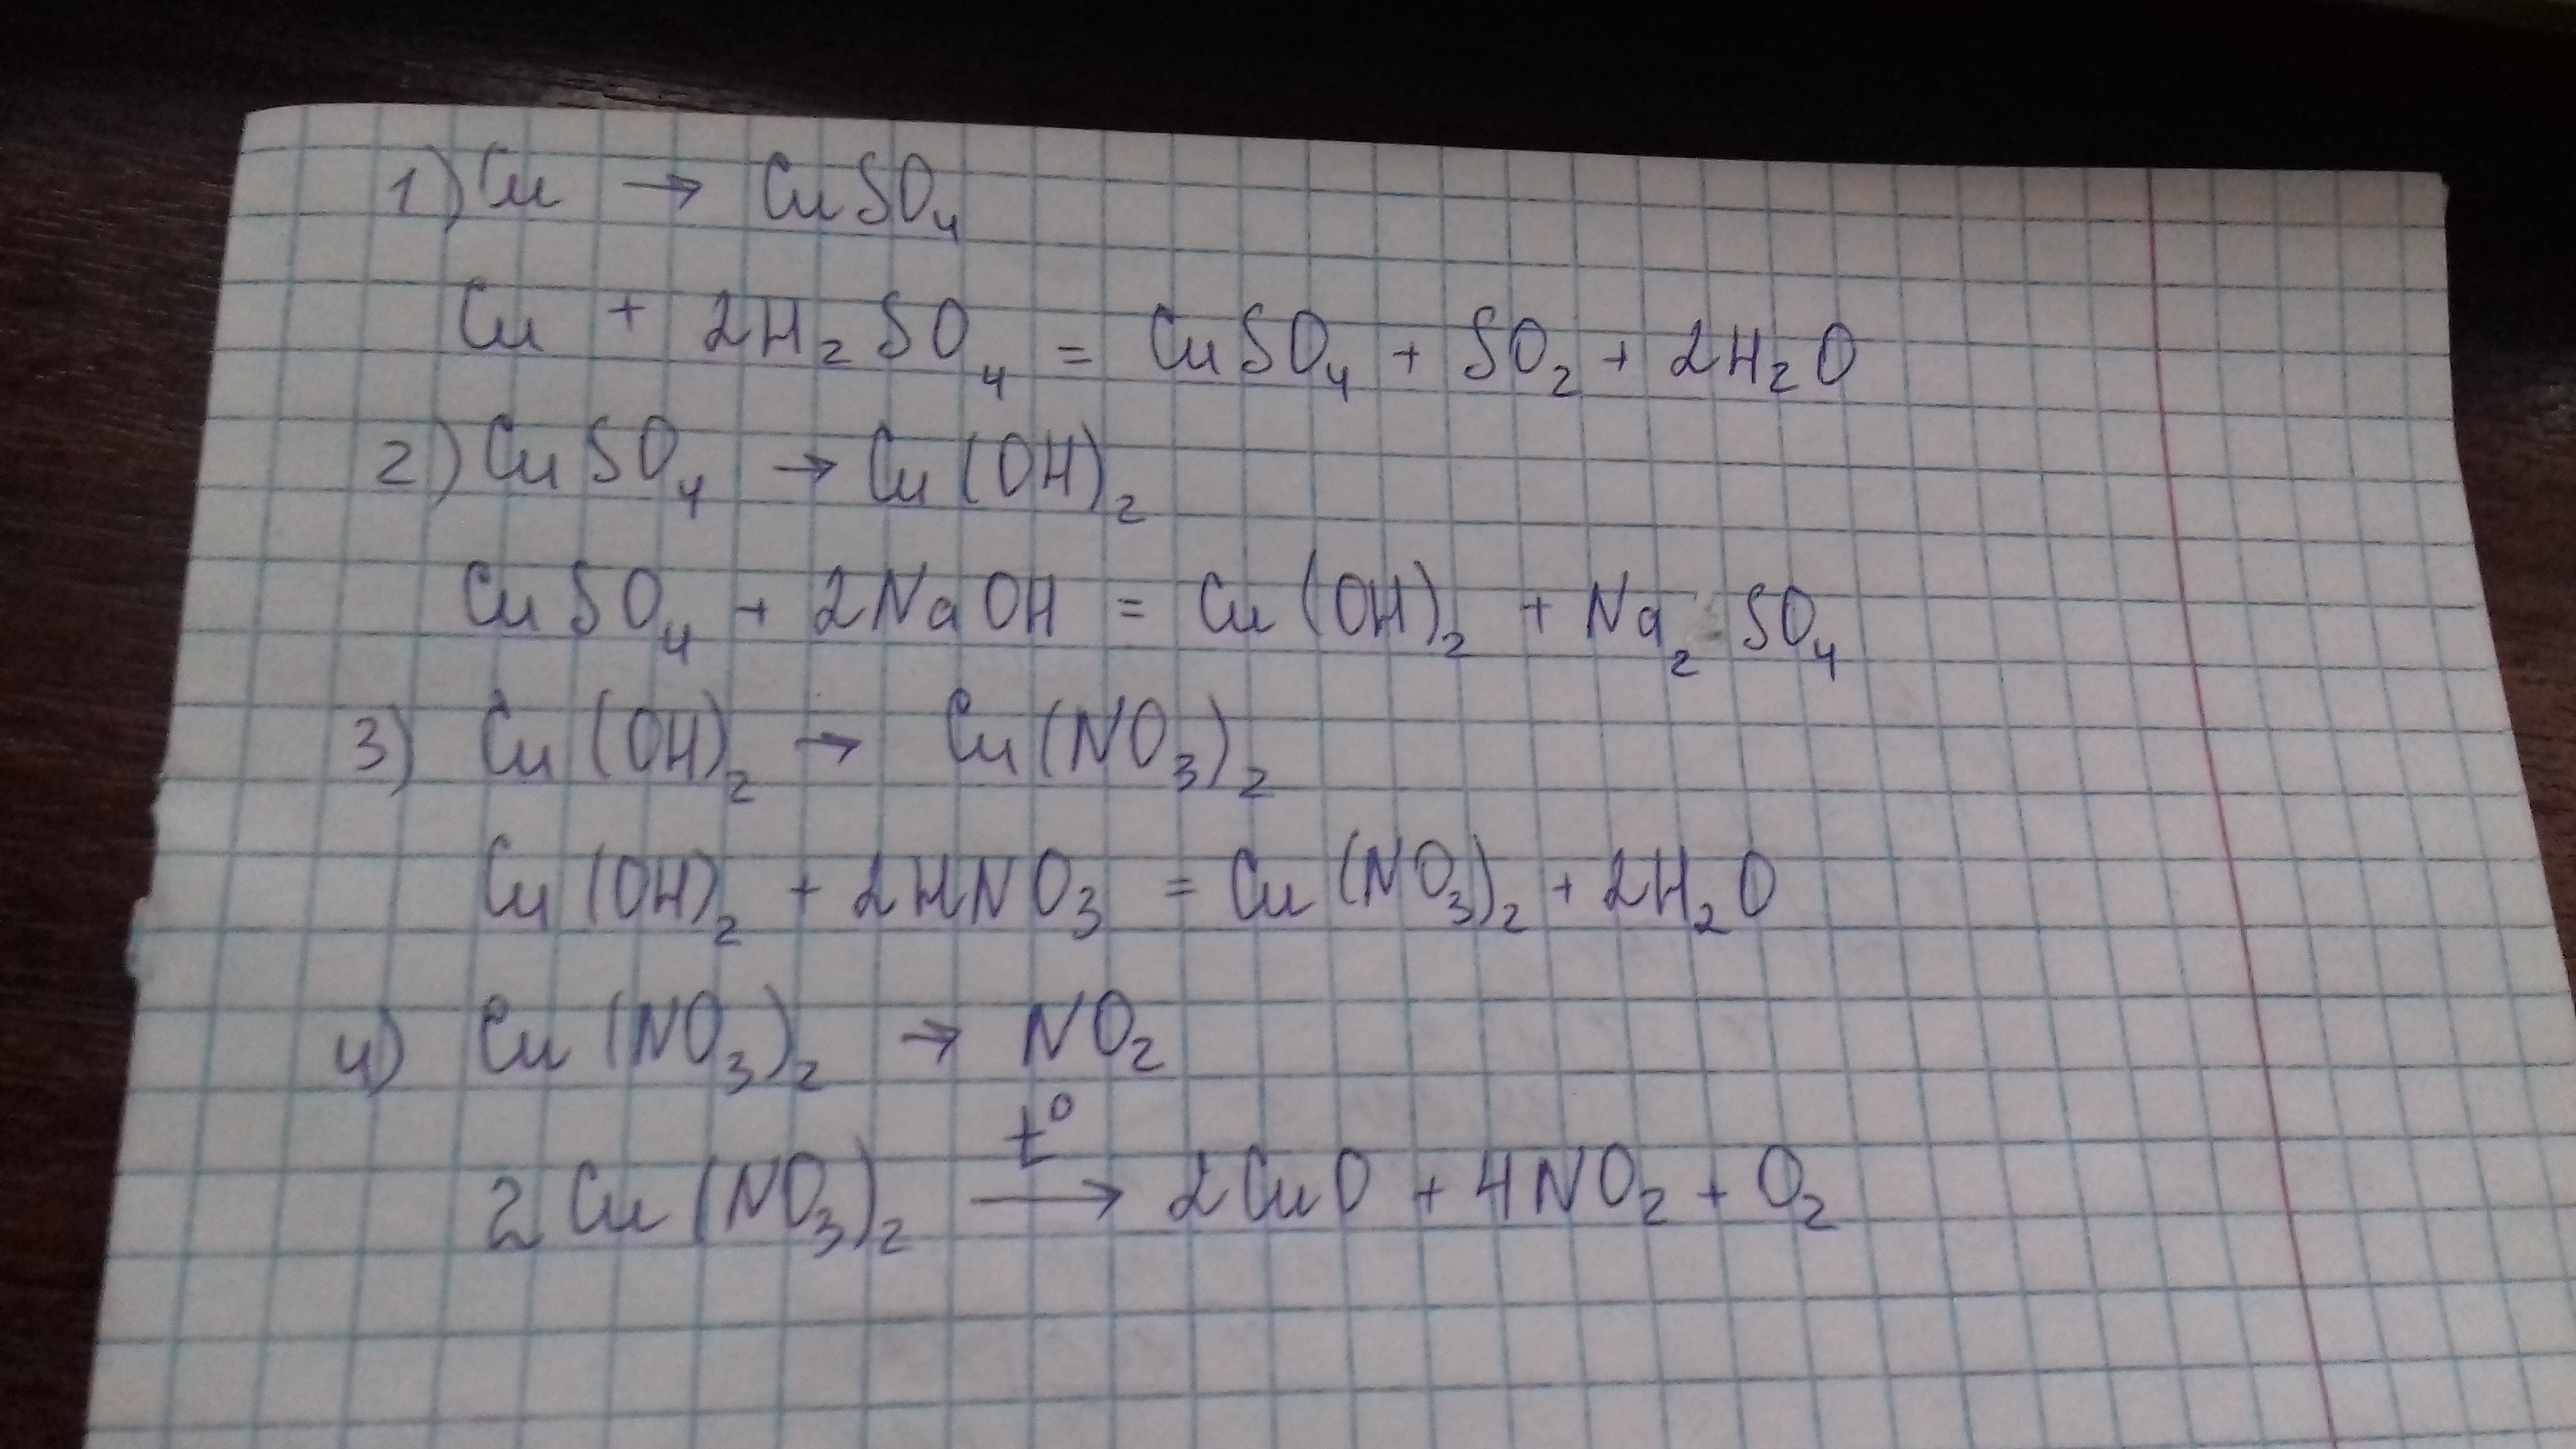 1) Cu → CuSO₄
Cu + 2H₂SO₄ = CuSO₄ + SO₂ + 2H₂O
2) CuSO₄ → Cu(OH)₂
CuSO₄ + 2NaOH = Cu(OH)₂ + Na₂SO₄
3) Cu(OH)₂ → Cu(NO₃)₂
Cu(OH)₂ + 2HNO₃ = Cu(NO₃)₂ + 2H₂O
4) Cu(NO₃)₂ → NO₂
t°
2Cu(NO₃)₂ → 2CuO + 4NO₂ + O₂